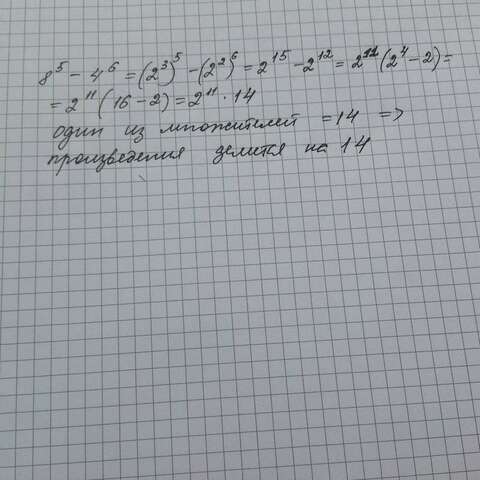 8⁵ - 4⁶ = (2³)⁵ - (2²)⁶ = 2¹⁵ - 2¹² = 2¹¹(2⁴ - 2) =
= 2¹¹(16 - 2) = 2¹¹ · 14
один из множителей = 14 =>
произведения делится на 14